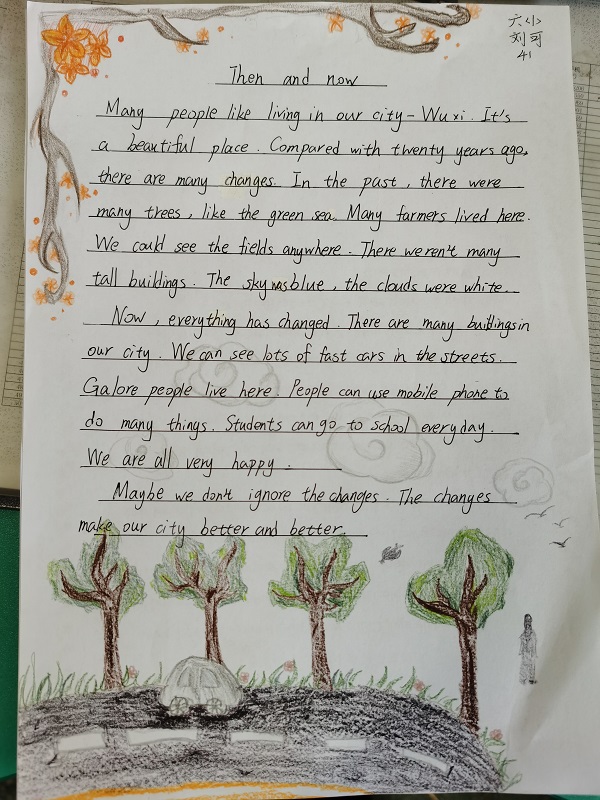 六小
刘可
41
Then and now
Many people like living in our city-Wuxi. It's
a beautiful place. Compared with twenty years ago,
there are many changes. In the past, there were
many trees, like the green sea. Many farmers lived here.
We could see the fields anywhere. There weren't many
tall buildings. The sky was blue, the clouds were white.
Now, everything has changed. There are many buitlings in
our city. We can see lots of fast cars in the streets.
Galore people live here. People can use mobile phone to
do many things. Students can go to school every day.
We are all very happy.
Maybe we don't ignore the changes. The changes
make our city better and better.